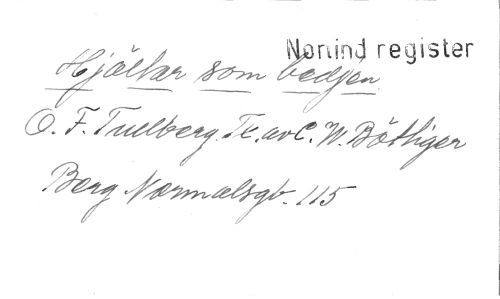 Norlind register
Hjältar som bedjen
O. F. Tullberg. Tx. av C. W. Böttiger
Berg Normalsgb. 115